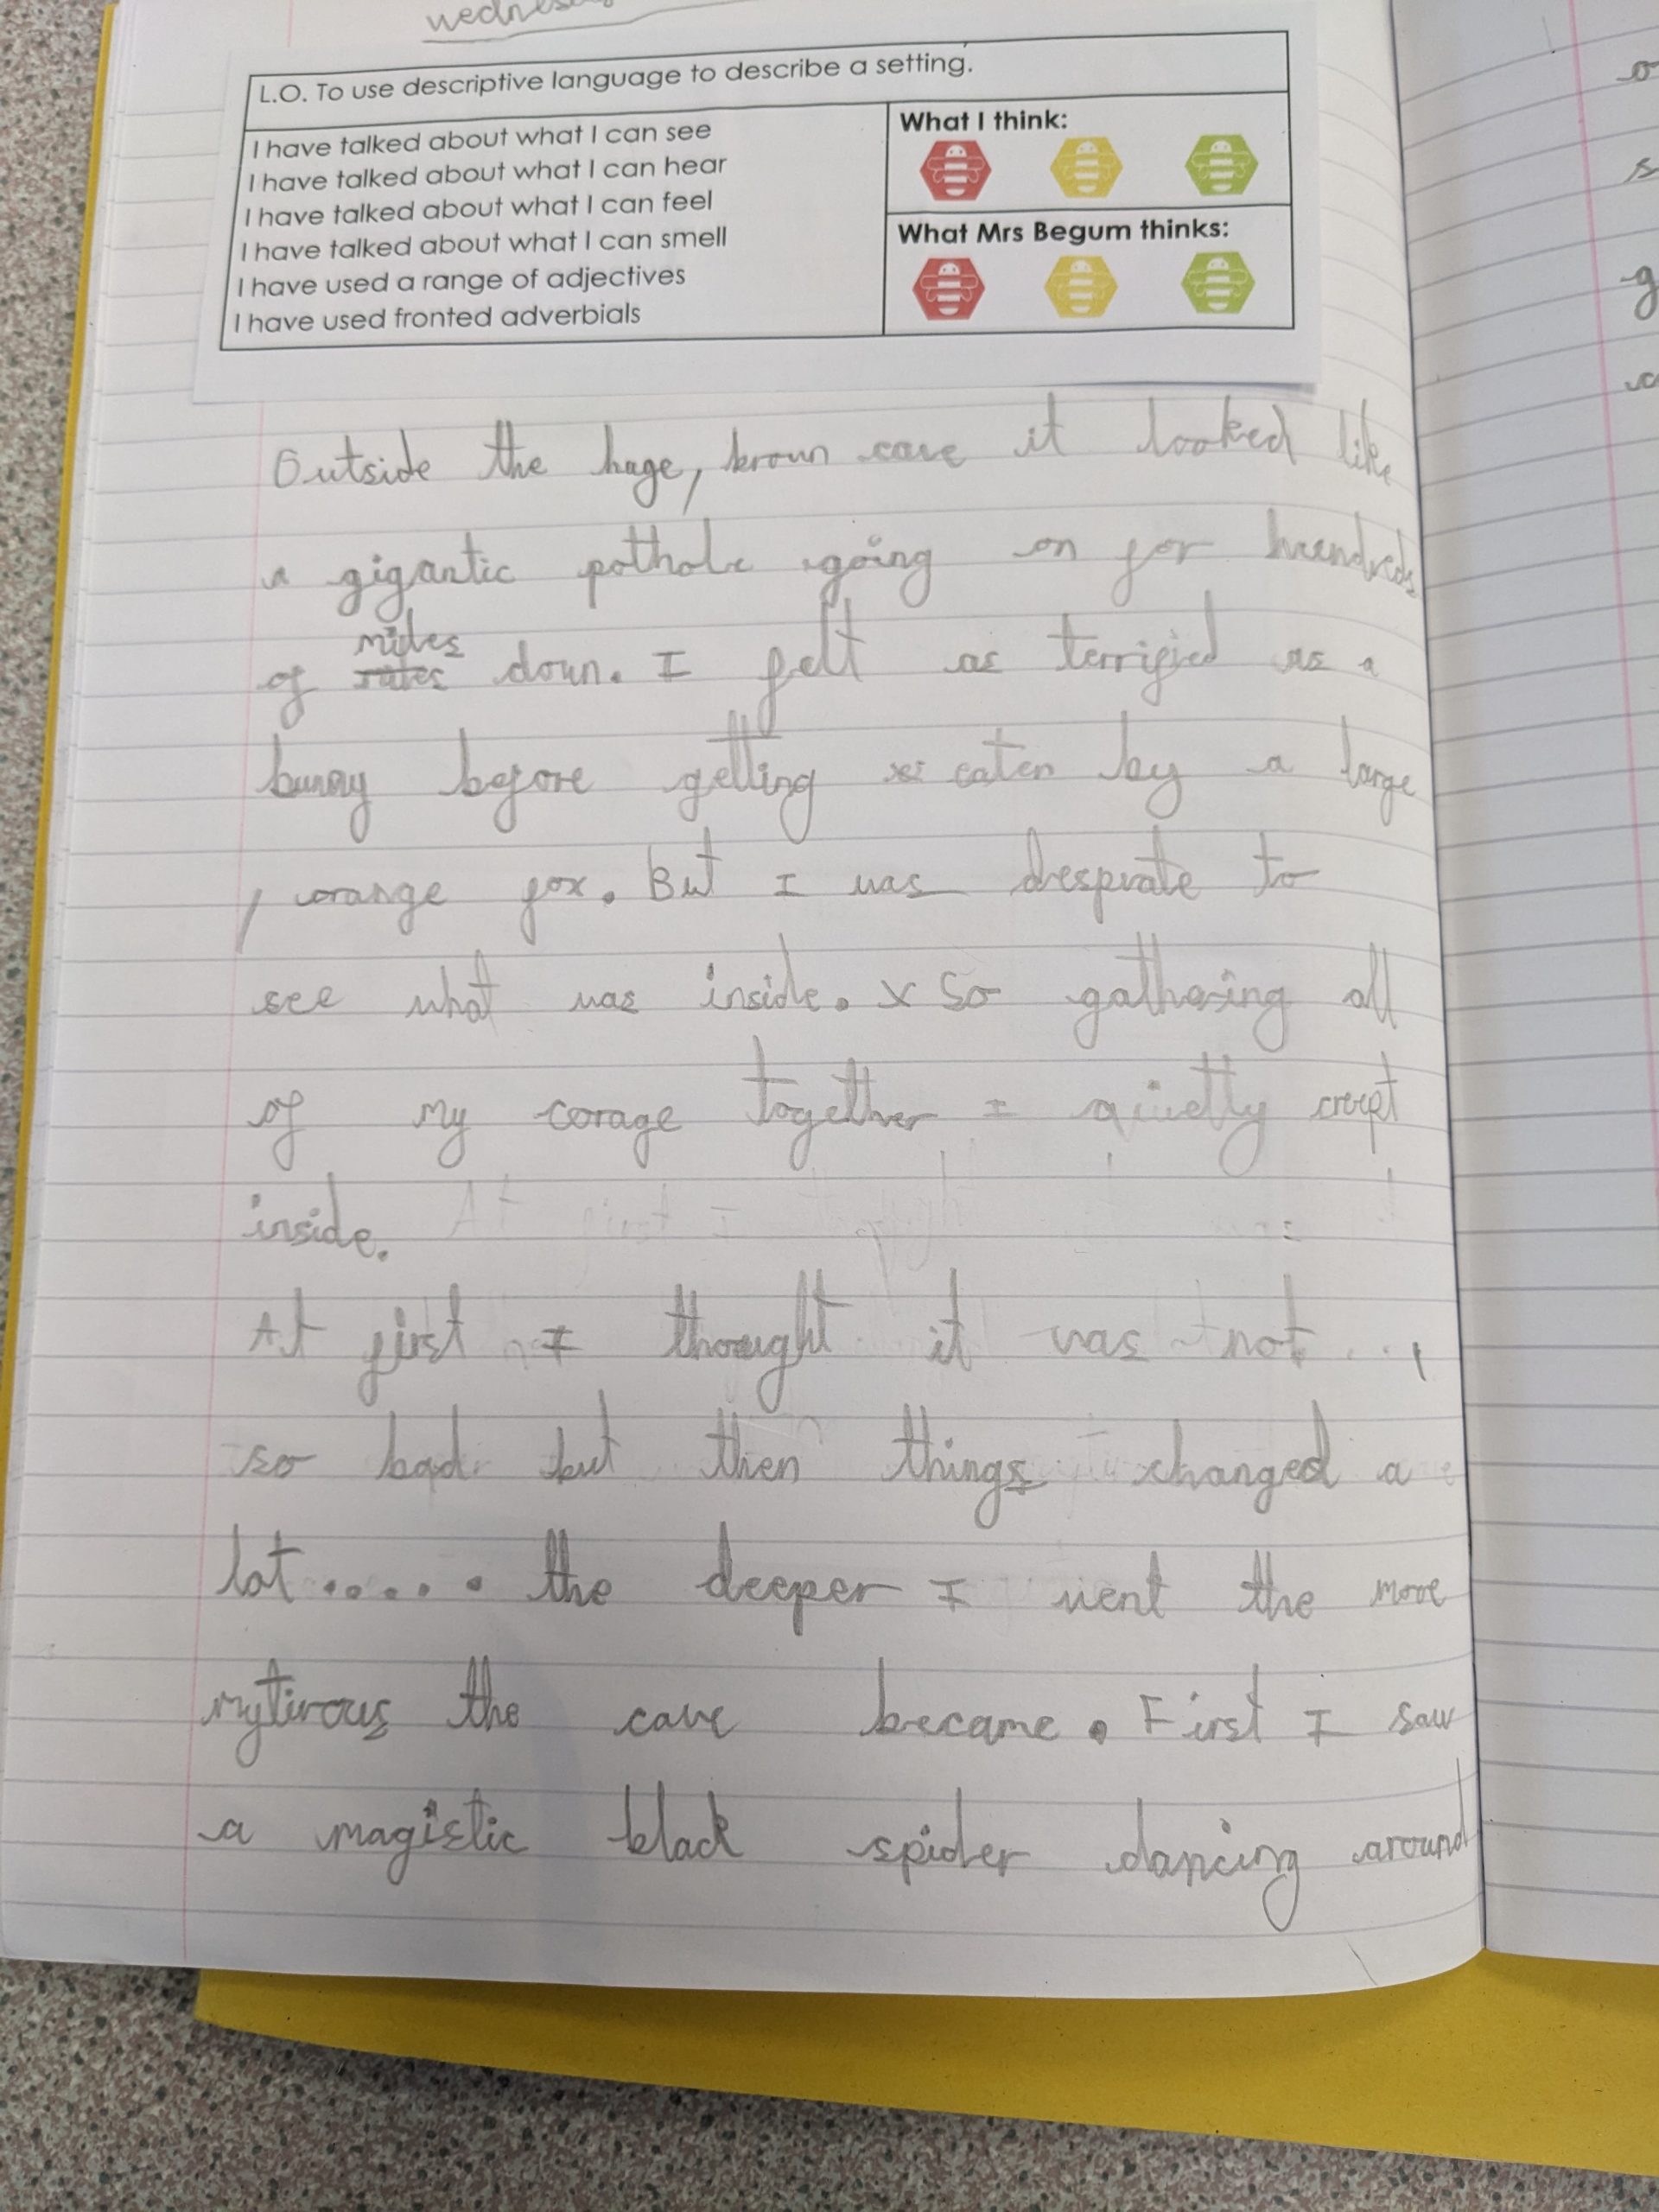 wednes
L.O. To use descriptive language to describe a setting.
I have talked about what I can see
I have talked about what I can hear
I have talked about what I can feel
I have talked about what I can smell
I have used a range of adjectives
I have used fronted adverbials
What I think:
What Mrs Begum thinks:
Outside the huge, brown cave it looked like
a gigantic pothole going on for hundreds
of miles down. I felt as terrified as a
bunny before getting eaten by a large
, orange fox. But I was desprate to
see what was inside. x So gathering all
of my corage together I quietly creept
inside.
At first I thought it was not
so bad but then things changed a
lot..... the deeper I went the more
mytirous the cave became. First I saw
a magistic black spider dancing around